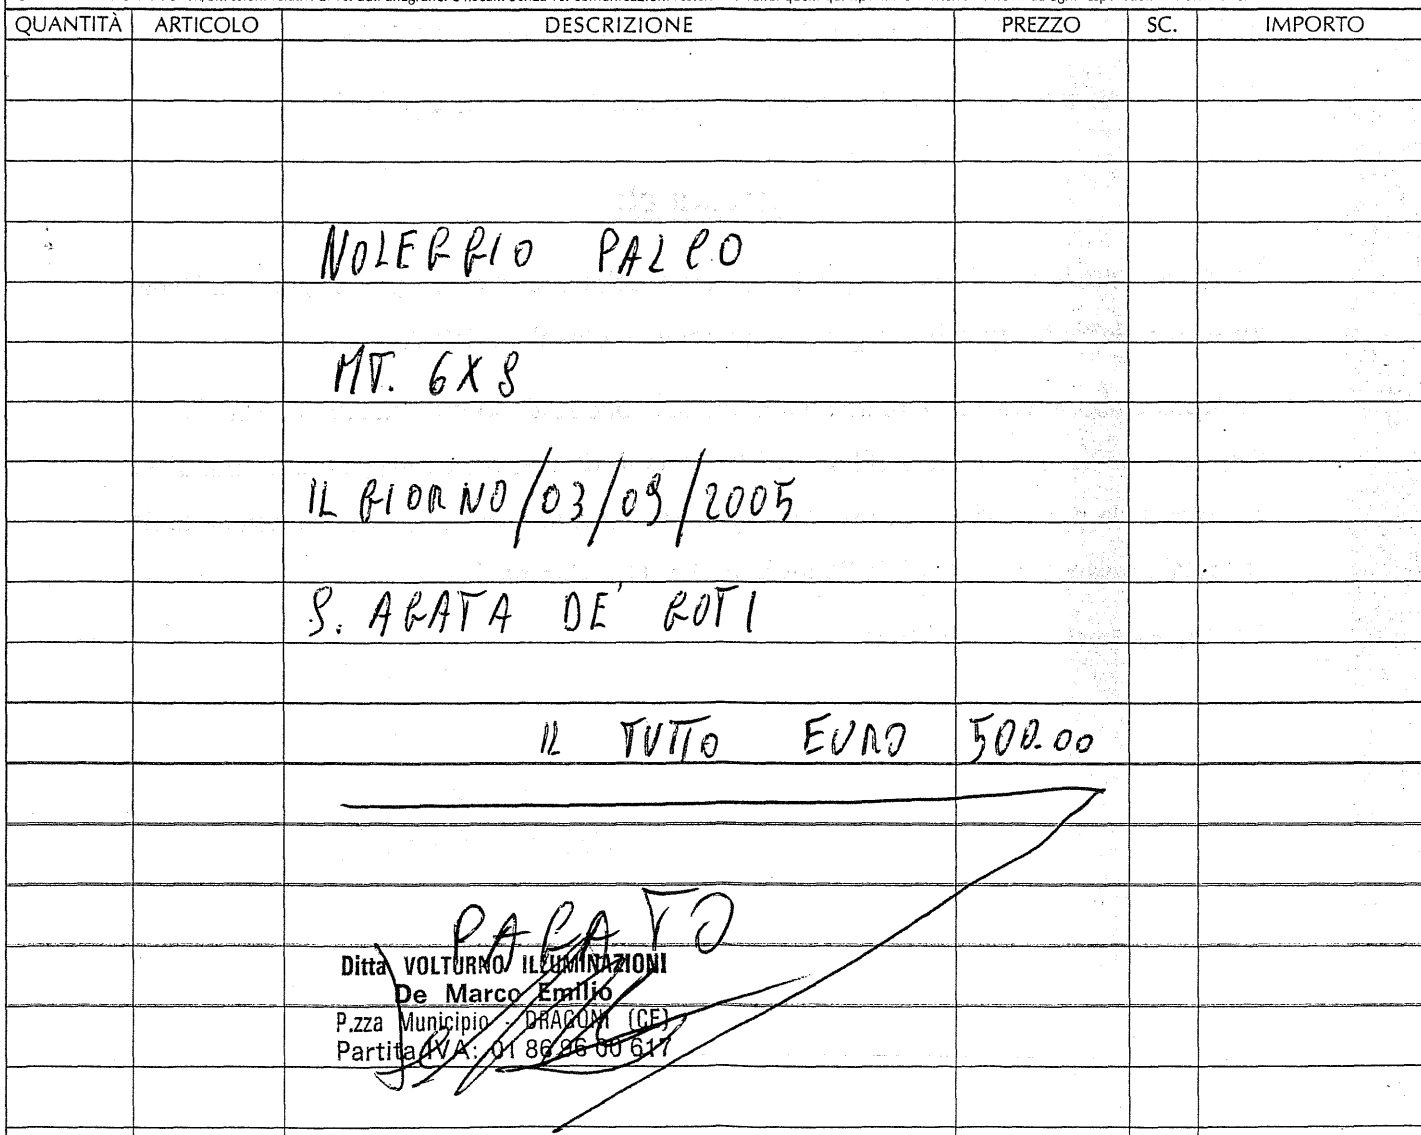 QUANTITÀ ARTICOLO DESCRIZIONE PREZZO SC. IMPORTO
NOLEGGIO PALCO
MT. 6X8
IL GIORNO/03/09/2005
S. AGATA DE' GOTI
IL TUTTO EURO 500.00
PAGATO
Ditta VOLTURNO ILLUMINAZIONI
De Marco Emilio
P.zza Municipio - DRAGONI (CE)
Partita IVA: 01 86 96 00 617